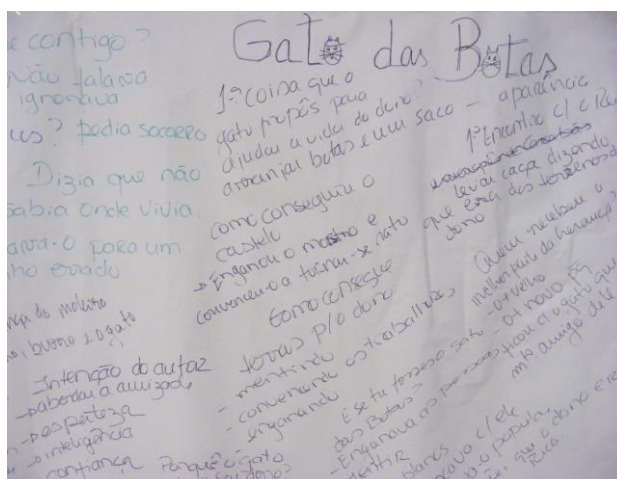 Gato das Botas
e contigo?
Não falava
ignorava
us? pedia socorro
Dizia que não
sabia onde vivia.
ava-o para um
nho errado.
nça do moleiro
o, burro e o gato
Intenção do autor
→abordar a amizade
→esperteza
→inteligência
confiança
1ª coisa que o
gato propôs para
ajudar a vida do dono?
arranjar botas e um saco — aparência
como conseguiu o
castelo
→ Enganou o mostro e
convenceu-o a tornar-se rato
Como consegue
terras p/o dono
- mentindo
- convencendo os trabalhadores
- enganando
Porquê o gato
seu dono?
1º Encontro c/ o Rei
levar caça dizendo
que era dos terrenos do
dono
Quem recebeu a
melhor parte da herança?
- o + velho
- o + novo pq
ficou c/ o gato que
mto amigo dele
E se tu fosses o Gato
das Botas?
- Enganava as pessoas
mentir
planos c/ ele
que o dono era
Rico.